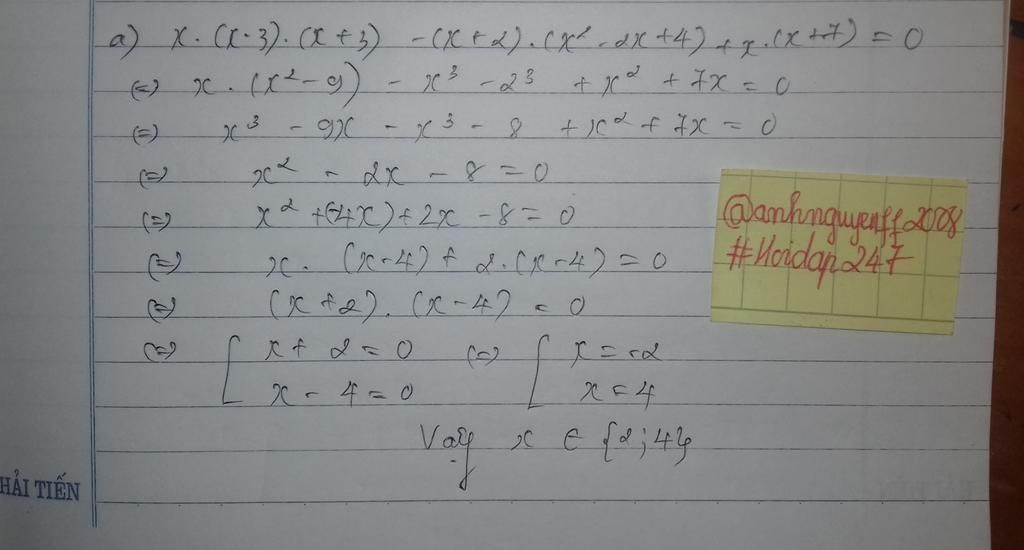 a) x.(x-3).(x+3) -(x+2).(x² - 2x+4) + x.(x+7) = 0
(=) x.(x² - 9) - x³ - 2³ + x² + 7x = 0
(=) x³ - 9x - x³ - 8 + x² + 7x = 0
(=) x² - 2x - 8 = 0
(=) x² +(-4x)+2x - 8 = 0
(=) x.(x-4)+ 2.(x-4) = 0
(=) (x+2).(x-4) = 0
(=) [ x + 2 = 0 (=) [ x = -2
x - 4 = 0 x = 4
Vậy x ∈ {2;4}
@anhnguyenff2008
#Hoidap247
HẢI TIẾN